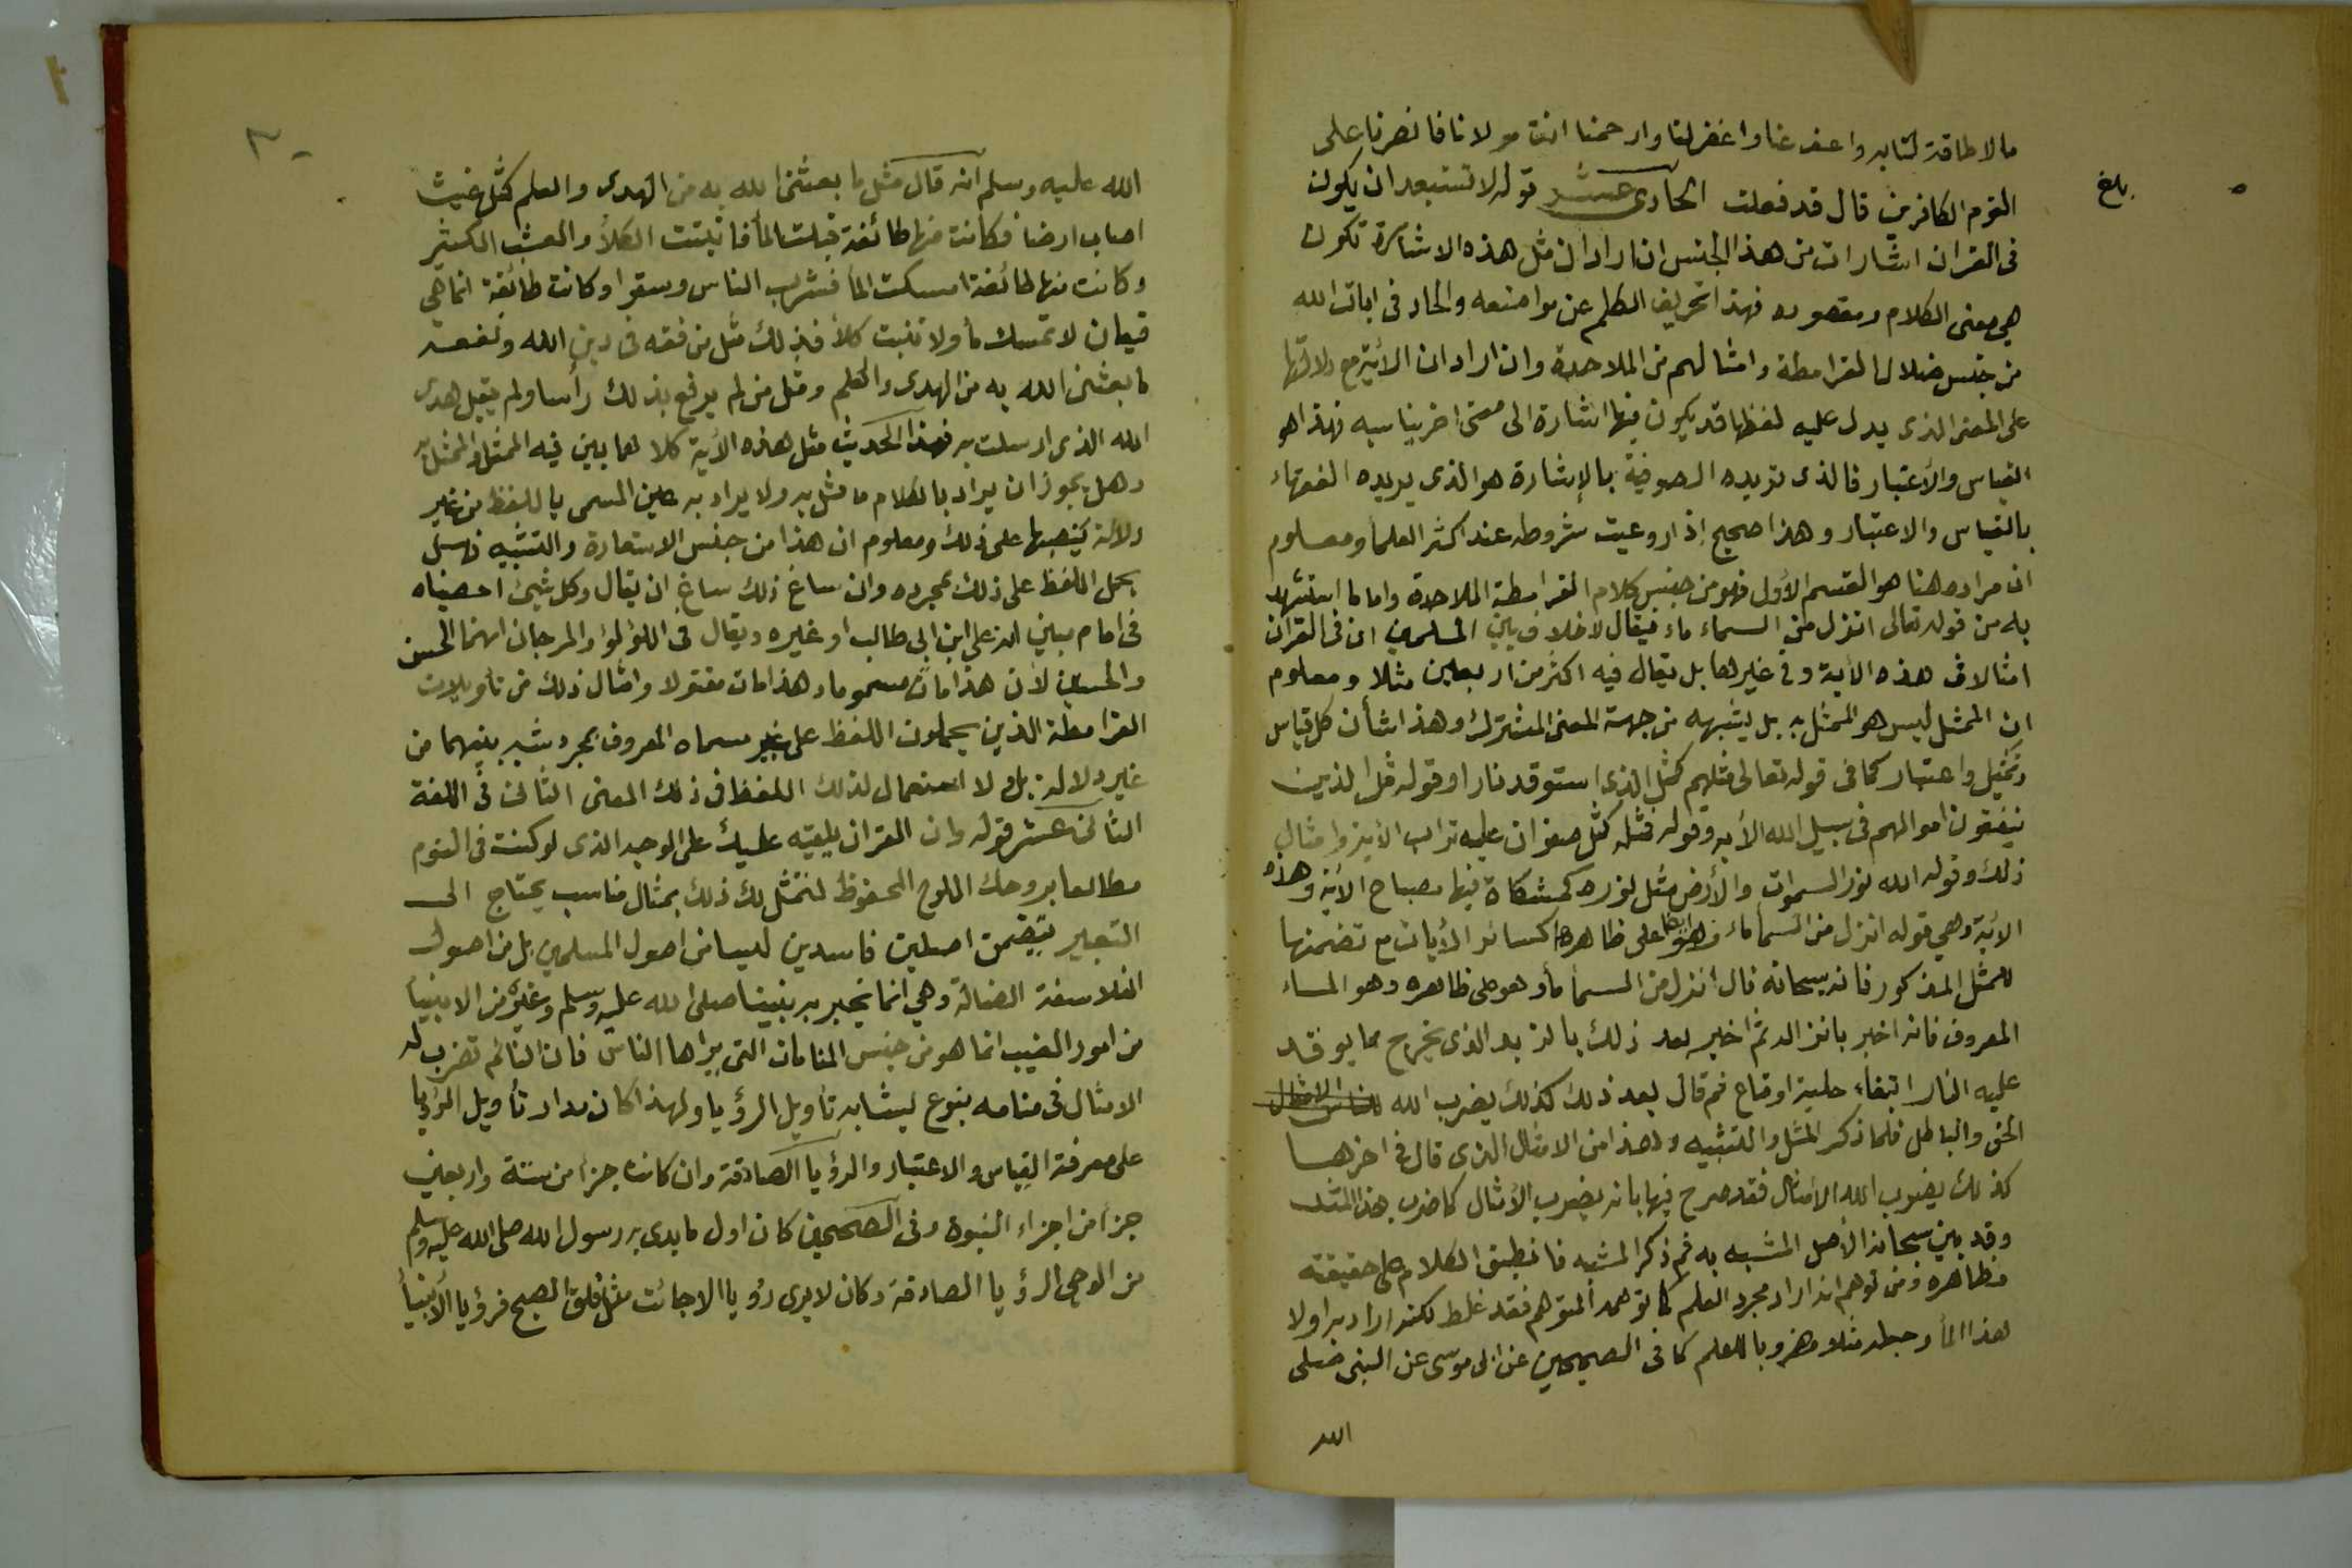 ما لا طاقة لنا به واعف عنا واغفر لنا وارحمنا انت مولانا فانصرنا على
القوم الكافرين قال قد فعلت الحادى عشر قوله لا تستبعد ان يكون
بلغ
فى القران اشارات من هذا الجنس ان اراد ان مثل هذه الاشارة تكون
هي معنى الكلام ومقصوده فهذا تحريف الكلم عن مواضعه والحاد فى ايات الله
من جنس ضلال القرامطة وامثالهم من الملاحدة وان اراد ان الأية مع دلالتها
على المعنى الذى يدل عليه لفظها قد يكون فيها اشارة الى معنى اخر يناسبه فهذا هو
القياس والأعتبار فالذى تريده الصوفية بالإشارة هو الذى يريده الفقهاء
بالقياس والاعتبار وهذا صحيح إذا روعيت شروطه عند اكثر العلماء ومعلوم
ان مراده هنا هو القسم الأول فهو من جنس كلام القرامطة الملاحدة واما ما استشهد
به من قوله تعالى انزل من السماء ماء فيقال لا خلاف بين المسلمين ان فى القران
امثالا فى هذه الأية وفى غيرها بل يقال فيه اكثر من اربعين مثلا ومعلوم
ان الممثل ليس هو الممثل به بل يشبهه من جهة المعنى المشترك وهذا شأن كل قياس
وتمثيل واعتبار كما فى قوله تعالى مثلهم كمثل الذى استوقد نارا وقوله مثل الذين
ينفقون اموالهم فى سبيل الله الأية وقوله فمثله كمثل صفوان عليه تراب الأية وامثال
ذلك وقوله الله نور السموات والأرض مثل نوره كمشكاة فيها مصباح الأية وهذه
الأية وهي قوله انزل من السماء ماء فهو ايضا على ظاهرها كسائر الأيات مع تضمنها
للمثل المذكور فانه سبحانه قال أنزل من السماء ماء وهو على ظاهره وهو الماء
المعروف فانه اخبر بانزاله ثم اخبر بعد ذلك بالزبد الذى يخرج مما يوقد
عليه النار ابتغاء حلية او متاع ثم قال بعد ذلك كذلك يضرب الله للناس الامثال
الحق والباطل فلما ذكر المثل والتشبيه وهذا من الامثال الذى قال فى اخرها
كذلك يضرب الله الأمثال فقد صرح فيها بانه يضرب الأمثال كما ضرب هذا المثل
وقد بين سبحانه الأصل المشبه به ثم ذكر المشبه فانطبق الكلام على حقيقته
فظاهره ومن توهم انه اراد مجرد العلم كما توهمه المتوهم فقد غلط لكنه اراد به اولا
هذا الماء وجعله مثلا مضروبا للعلم كما فى الصحيحين عن ابى موسى عن النبى صلى
الله
الله عليه وسلم انه قال مثل ما بعثنى الله به من الهدى والعلم كمثل غيث
اصاب ارضا فكانت منها طائفة قبلت الماء فانبتت الكلأ والعشب الكثير
وكانت منها طائفة امسكت الماء فشرب الناس وسقوا وكانت طائفة انما هى
قيعان لا تمسك ماء ولا تنبت كلأ فذلك مثل من فقه فى دين الله ونفعه
ما بعثنى الله به من الهدى والعلم ومثل من لم يرفع بذلك رأسا ولم يقبل هدى
الله الذى ارسلت به فهذا الحديث مثل هذه الأية كلاهما بين فيه الممثل والممثل به
وهل يجوز ان يراد بالكلام ما مثل به ولا يراد به عين المسمى باللفظ من غير
دلالة ينصبها على ذلك ومعلوم ان هذا من جنس الاستعارة والتشبيه فهل
يحمل اللفظ على ذلك بمجرده وان ساغ ذلك ساغ ان يقال وكل شيئ احصيناه
فى امام مبين انه على ابن ابى طالب او غيره ويقال فى اللؤلؤ والمرجان انهما الحسن
والحسين لأن هذا مات مسموما وهذا مات مقتولا وامثال ذلك من تأويلات
القرامطة الذين يحملون اللفظ على غير مسماه المعروف بمجرد شبه بينهما من
غير دلالة بل ولا استعمال لذلك اللفظ فى ذلك المعنى الثانى فى اللغة
الثانى عشر قوله وان القران يلقيه عليك على الوجه الذى لو كنت فى النوم
مطالعا بروحك اللوح المحفوظ لتمثل لك ذلك بمثال مناسب يحتاج الى
التعبير يتضمن اصلين فاسدين ليسا من اصول المسلمين بل من اصول
الفلاسفة الضالة وهي انما يخبر به نبينا صلى الله عليه وسلم وغيره من الانبياء
من امور الغيب انما هو من جنس المنامات التى يراها الناس فان النائم تضرب له
الامثال فى منامه بنوع يشابه تأويل الرؤيا ولهذا كان مدار تأويل الرؤيا
على معرفة القياس والاعتبار والرؤيا الصادقة وان كانت جزأ من ستة واربعين
جزأ من اجزاء النبوة وفى الصحيحين كان اول ما بدى به رسول الله صلى الله عليه وسلم
من الوحى الرؤيا الصادقة وكان لا يرى رؤيا الا جائت مثل فلق الصبح فرؤيا الأنبياء